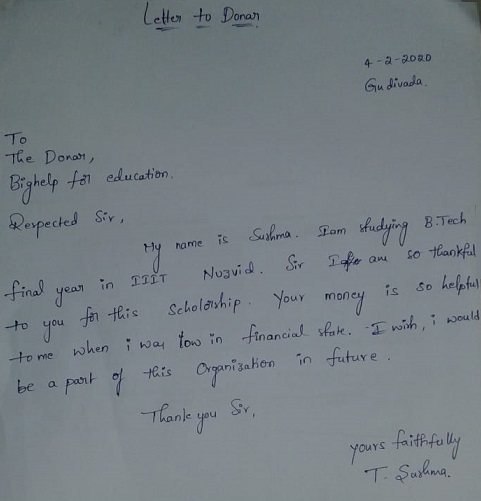 Letter to Donar
4-2-2020
Gudivada.
To
The Donar,
Bighelp for education.
Respected Sir,
My name is Sushma. Iam studying B.Tech
final year in IIIT Nuzvid. Sir I am so thankful
to you for this Scholorship. Your money is so helpful
to me when i was low in financial state. I wish, i would
be a part of this Organization in future.
Thank you Sir,
yours faithfully
T. Sushma.